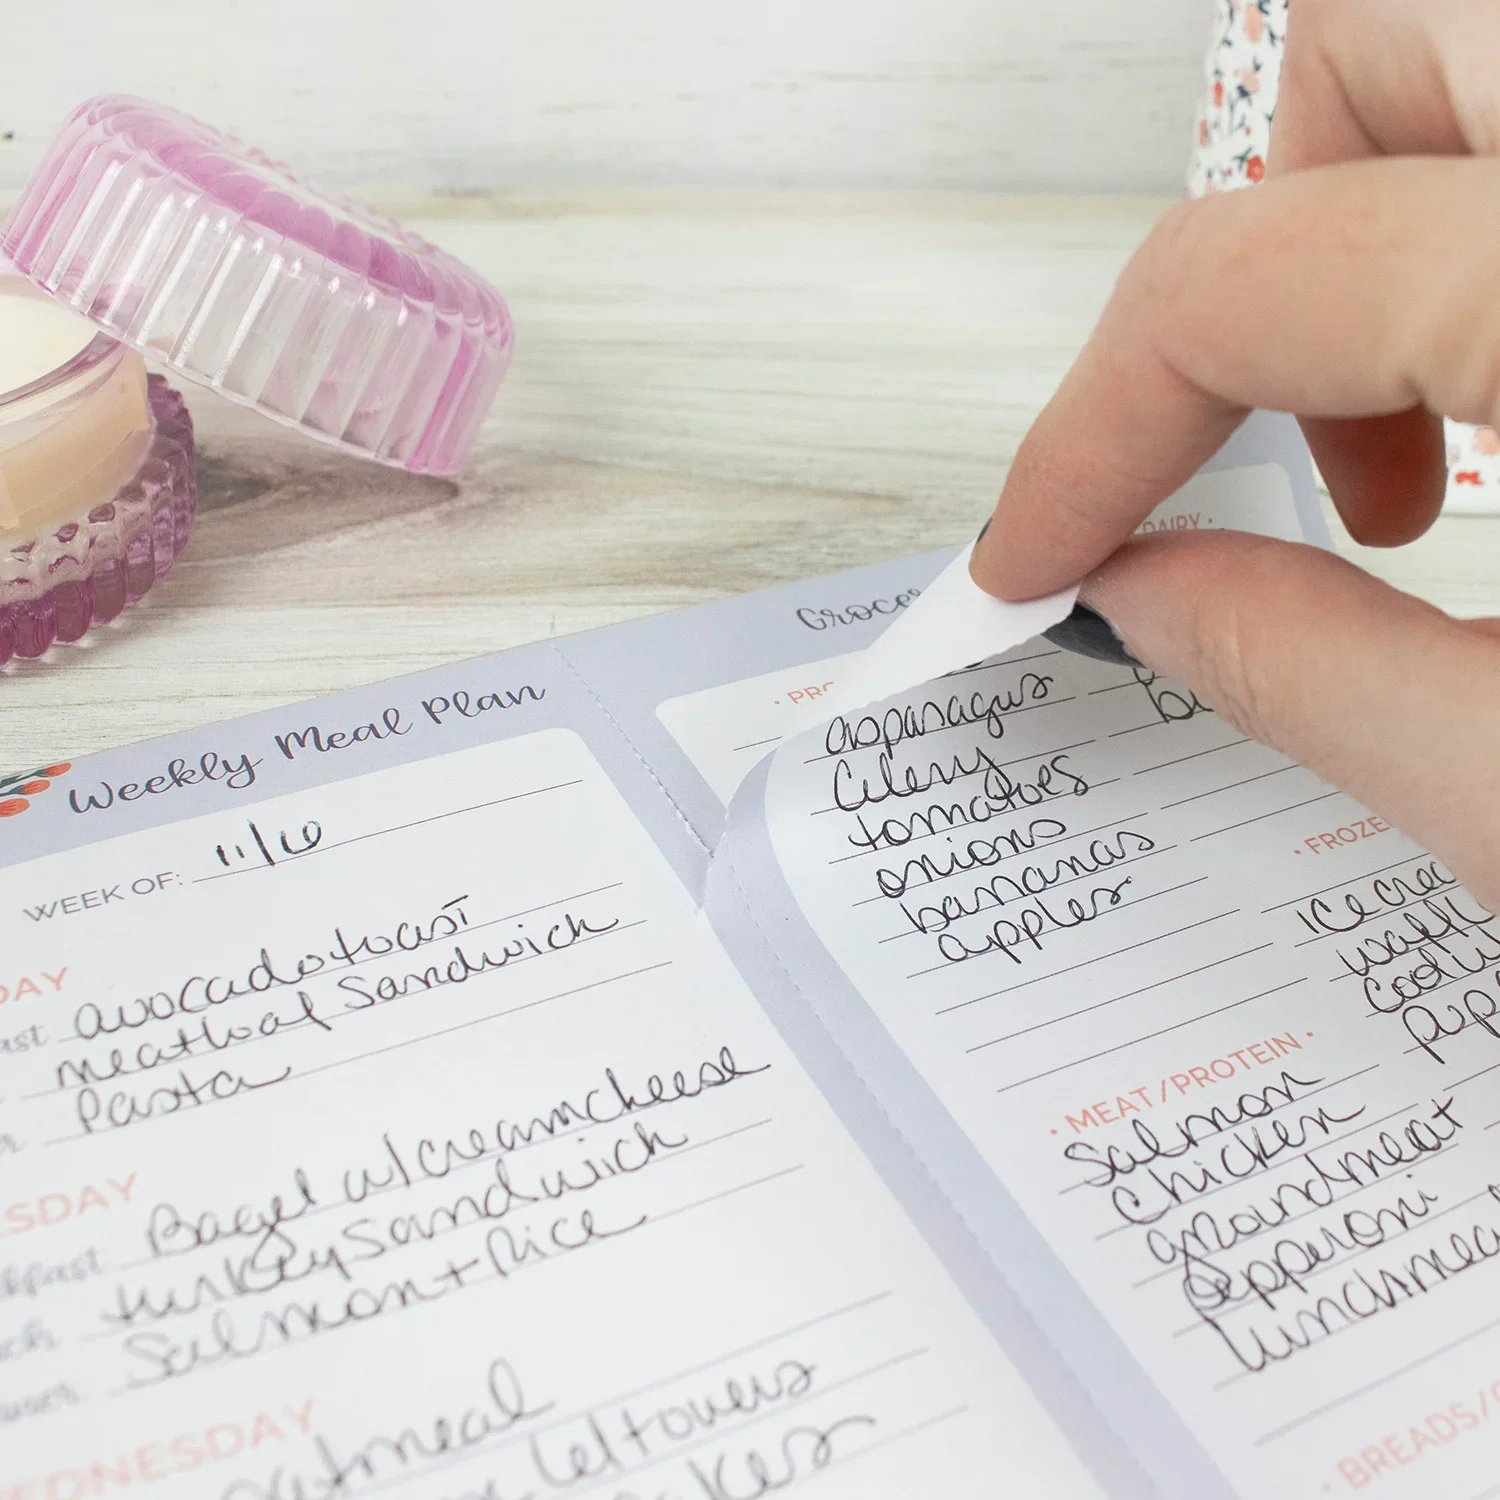 Weekly Meal Plan
WEEK OF: 11/10
DAY
avocado toast
meatloaf sandwich
Pasta
SDAY
Bagel w/ creamcheese
turkey sandwich
Salmon + Rice
DNESDAY
oatmeal
leftovers
Groce
DAIRY
PR
asparagus
Celery
tomatoes
onions
bananas
apples
FROZE
ice crea
waffl
cool w
MEAT/PROTEIN
Salmon
Chicken
ground meat
pepperoni
lunchmea
BREADS/